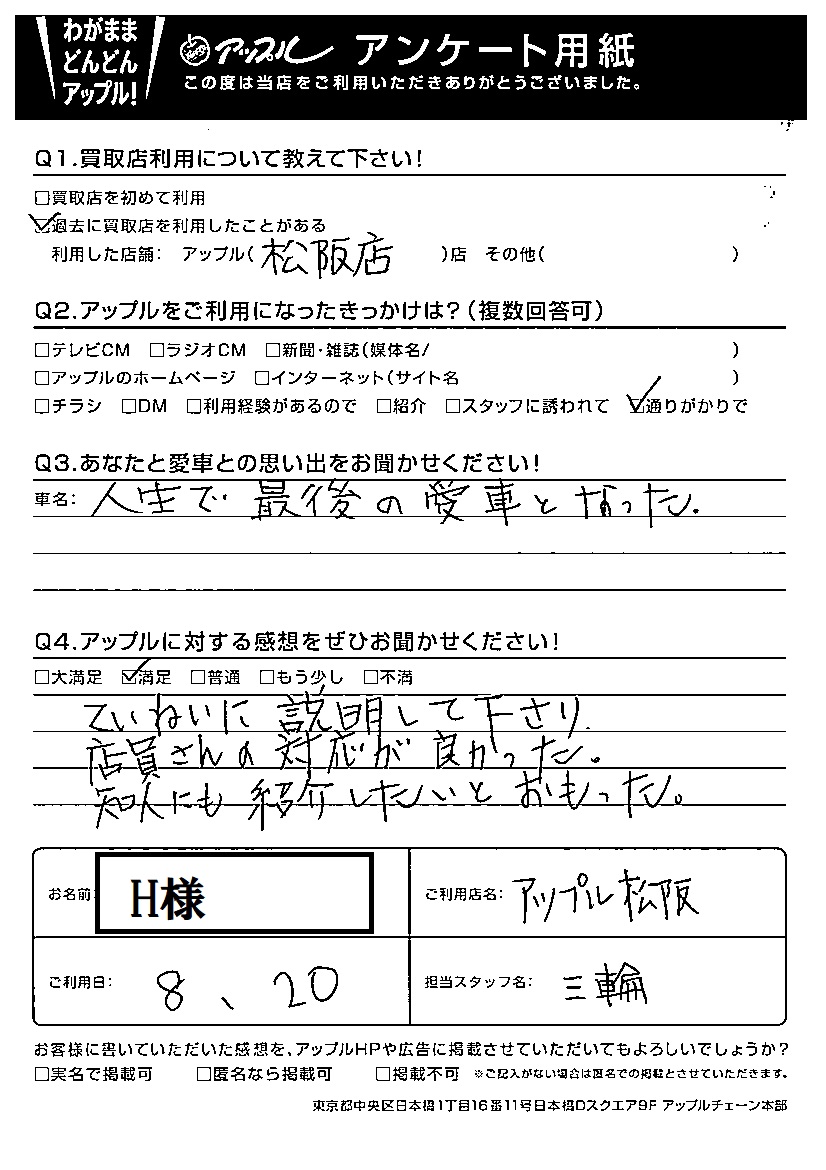 わがまま
どんどん
アップル!
アップル アンケート用紙
この度は当店をご利用いただきありがとうございました。
Q1.買取店利用について教えて下さい!
□買取店を初めて利用
☑過去に買取店を利用したことがある
利用した店舗: アップル(松阪店)店 その他( )
Q2.アップルをご利用になったきっかけは?(複数回答可)
□テレビCM □ラジオCM □新聞・雑誌(媒体名/ )
□アップルのホームページ □インターネット(サイト名 )
□チラシ □DM □利用経験があるので □紹介 □スタッフに誘われて ☑通りがかりで
Q3.あなたと愛車との思い出をお聞かせください!
車名: 人生で最後の愛車となった.
Q4.アップルに対する感想をぜひお聞かせください!
□大満足 ☑満足 □普通 □もう少し □不満
ていねいに説明して下さり
店員さんの対応が良かった。
知人にも紹介したいとおもった。
お名前: H様 ご利用店名: アップル松阪
ご利用日: 8、20 担当スタッフ名: 三輪
お客様に書いていただいた感想を、アップルHPや広告に掲載させていただいてもよろしいでしょうか?
□実名で掲載可 □匿名なら掲載可 □掲載不可 ※ご記入がない場合は匿名での掲載とさせていただきます。
東京都中央区日本橋1丁目16番11号日本橋Dスクエア9F アップルチェーン本部